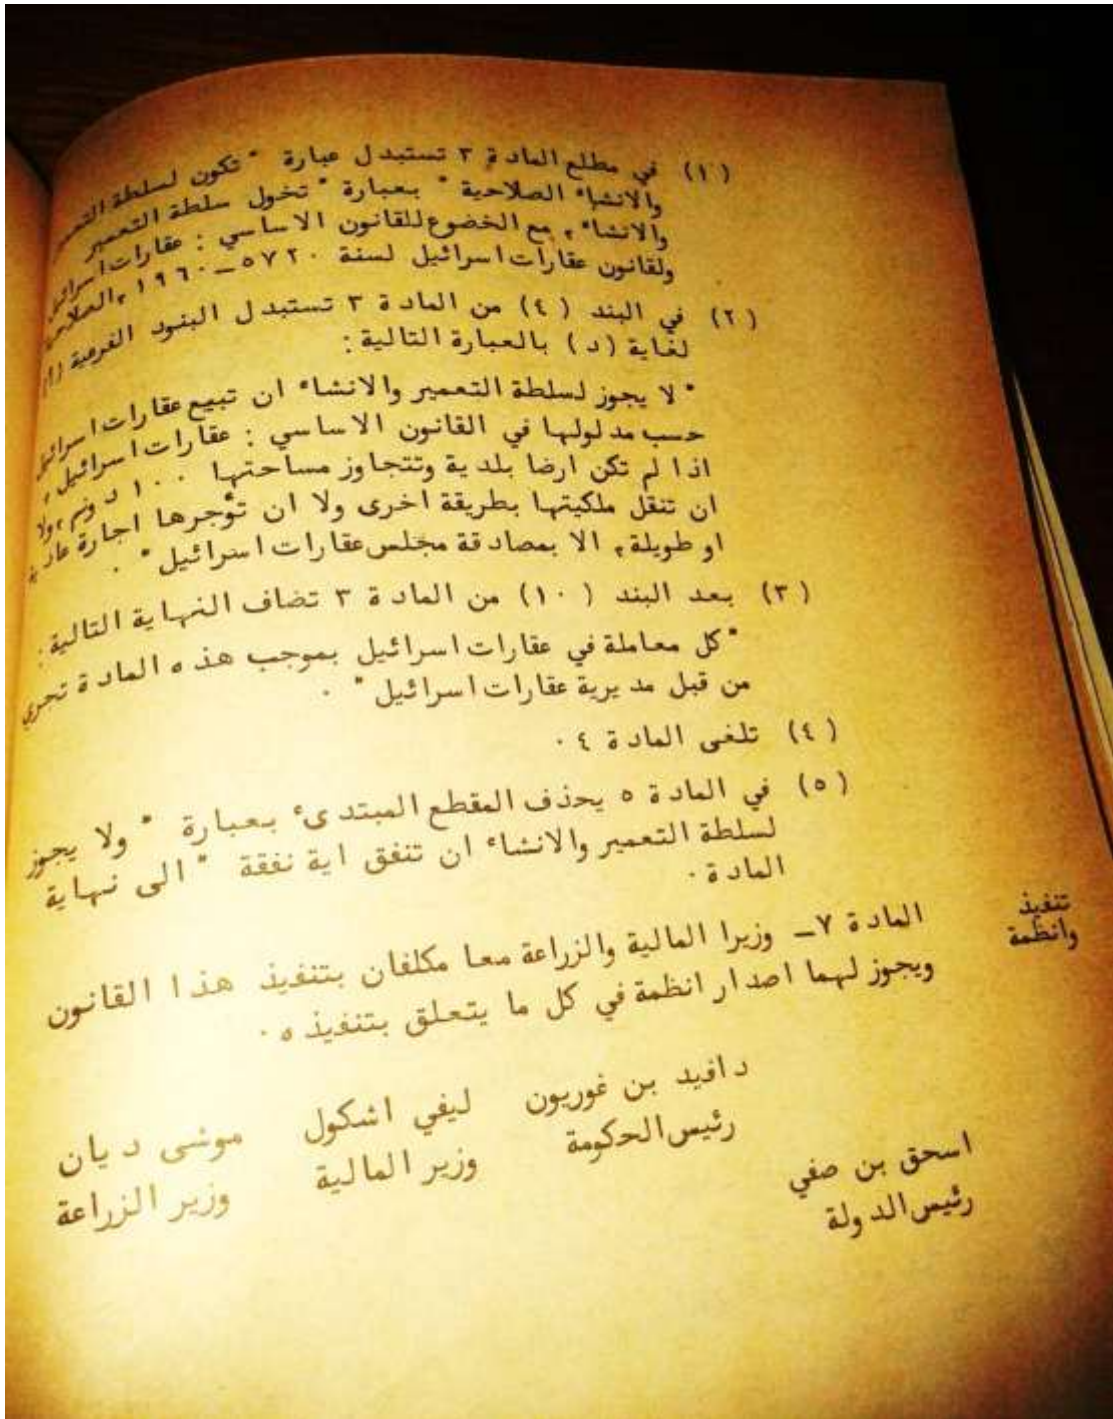 (١) في مطلع المادة ٣ تستبدل عبارة " تكون لسلطة
والانشاء الصلاحية " بعبارة " تخول سلطة التعمير
والانشاء، مع الخضوع للقانون الاساسي : عقارات اسرائيل
ولقانون عقارات اسرائيل لسنة ٥٧٢٠ــ١٩٦٠،
(٢) في البند (٤) من المادة ٣ تستبدل البنود الفرعية (أ)
لغاية (د) بالعبارة التالية :
" لا يجوز لسلطة التعمير والانشاء ان تبيع عقارات اسرائيل
حسب مدلولها في القانون الاساسي : عقارات اسرائيل،
اذا لم تكن ارضا بلدية وتتجاوز مساحتها ١٠٠ دونم، ولا
ان تنقل ملكيتها بطريقة اخرى ولا ان تؤجرها اجارة عادية
او طويلة، الا بمصادقة مجلس عقارات اسرائيل " .
(٣) بعد البند (١٠) من المادة ٣ تضاف النهاية التالية :
" كل معاملة في عقارات اسرائيل بموجب هذه المادة تجري
من قبل مديرية عقارات اسرائيل " .
(٤) تلغى المادة ٤ .
(٥) في المادة ٥ يحذف المقطع المبتدىء بعبارة " ولا يجوز
لسلطة التعمير والانشاء ان تنفق اية نفقة " الى نهاية
المادة .
تنفيذ
وانظمة
المادة ٧ــ وزيرا المالية والزراعة معا مكلفان بتنفيذ هذا القانون
ويجوز لهما اصدار انظمة في كل ما يتعلق بتنفيذه .
دافيد بن غوريون ليفي اشكول موشى ديان
رئيس الحكومة وزير المالية وزير الزراعة
اسحق بن صفي
رئيس الدولة